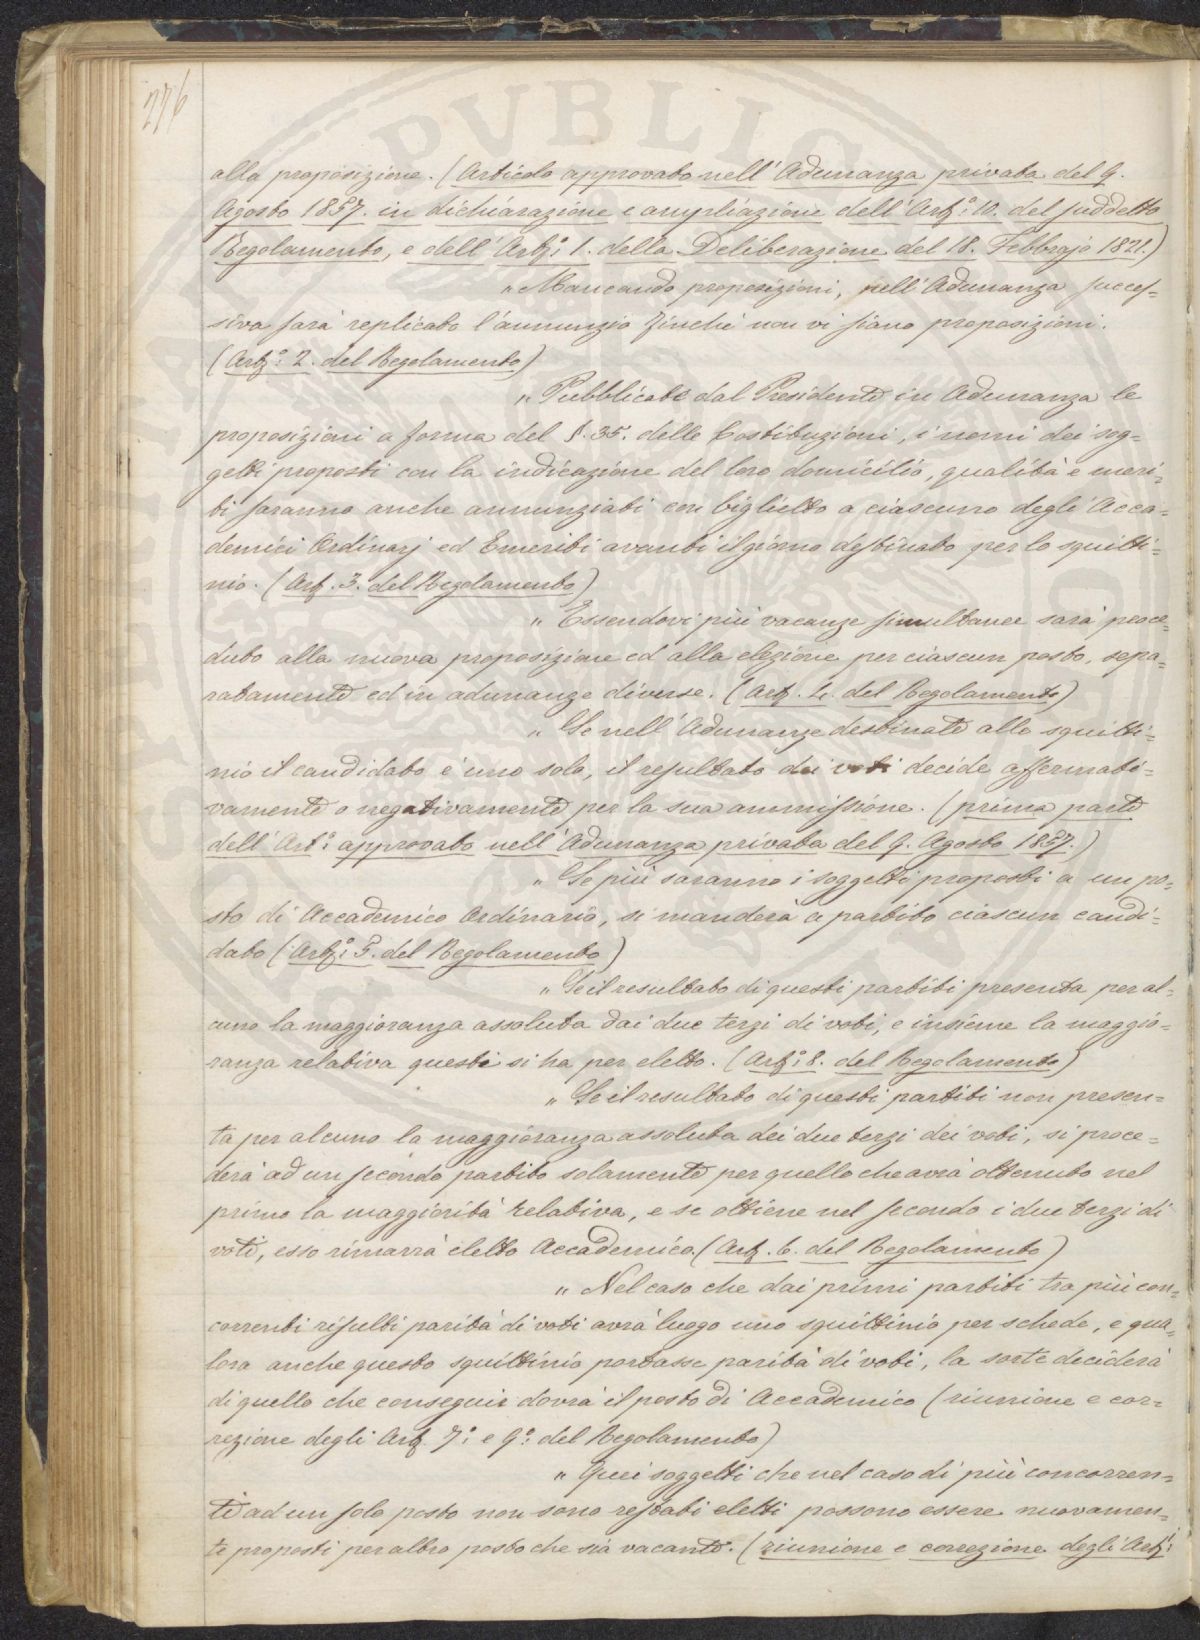 276
alla proposizione. (Articolo approvato nell'Adunanza privata del 9.
Agosto 1857. in dichiarazione e ampliazione dell'Art.° 10. del suddetto
Regolamento, e dell'Art.° 1. della Deliberazione del 18. Febbrajo 1821.)
„ Mancando proposizioni, nell'Adunanza succes=
siva sarà replicato l'annunzio finché non vi siano proposizioni.
(Art.° 2. del Regolamento)
„ Pubblicate dal Presidente in Adunanza le
proposizioni a forma del §. 35. delle Costituzioni, i nomi dei sog=
getti proposti con la indicazione del loro domicilio, qualità e meri=
ti saranno anche annunziati con biglietto a ciascuno degli Acca=
demici Ordinarj ed Emeriti avanti il giorno destinato per lo squitti=
nio. (Art. 3. del Regolamento)
„ Essendovi più vacanze simultanee sarà proce=
duto alla nuova proposizione ed alla elezione per ciascun posto, sepa=
ratamente ed in adunanze diverse. (Art. 4. del Regolamento)
„ Se nell'Adunanze destinate allo squitti=
nio il candidato è uno solo, il resultato dei voti decide affermati=
vamente o negativamente per la sua ammissione. (prima parte
dell'Art.° approvato nell'Adunanza privata del 9. Agosto 1857.)
„ Se più saranno i soggetti proposti a un po=
sto di Accademico Ordinario, si manderà a partito ciascun candi=
dato (Art.° 5. del Regolamento)
„ Se il resultato di questi partiti presenta per al=
cuno la maggioranza assoluta dai due terzi di voti, e insieme la maggio=
ranza relativa questi si ha per eletto. (Art.° 8. del Regolamento)
„ Se il resultato di questi partiti non presen=
ta per alcuno la maggioranza assoluta dei due terzi dei voti, si proce=
derà ad un secondo partito solamente per quello che avrà ottenuto nel
primo la maggiorità relativa, e se ottiene nel secondo i due terzi di
voti, esso rimarrà eletto Accademico. (Art. 6. del Regolamento)
„ Nel caso che dai primi partiti tra più con=
correnti risulti parità di voti avrà luogo uno squittinio per schede, e qua=
lora anche questo squittinio portasse parità di voti, la sorte deciderà
di quello che conseguir dovrà il posto di Accademico (riunione e cor=
rezione degli Art. 7.° e 9.° del Regolamento)
„ Quei soggetti che nel caso di più concorren=
ti ad un solo posto non sono restati eletti possono essere nuovamen=
te proposti per altro posto che sia vacante. (riunione e correzione degli Art.i